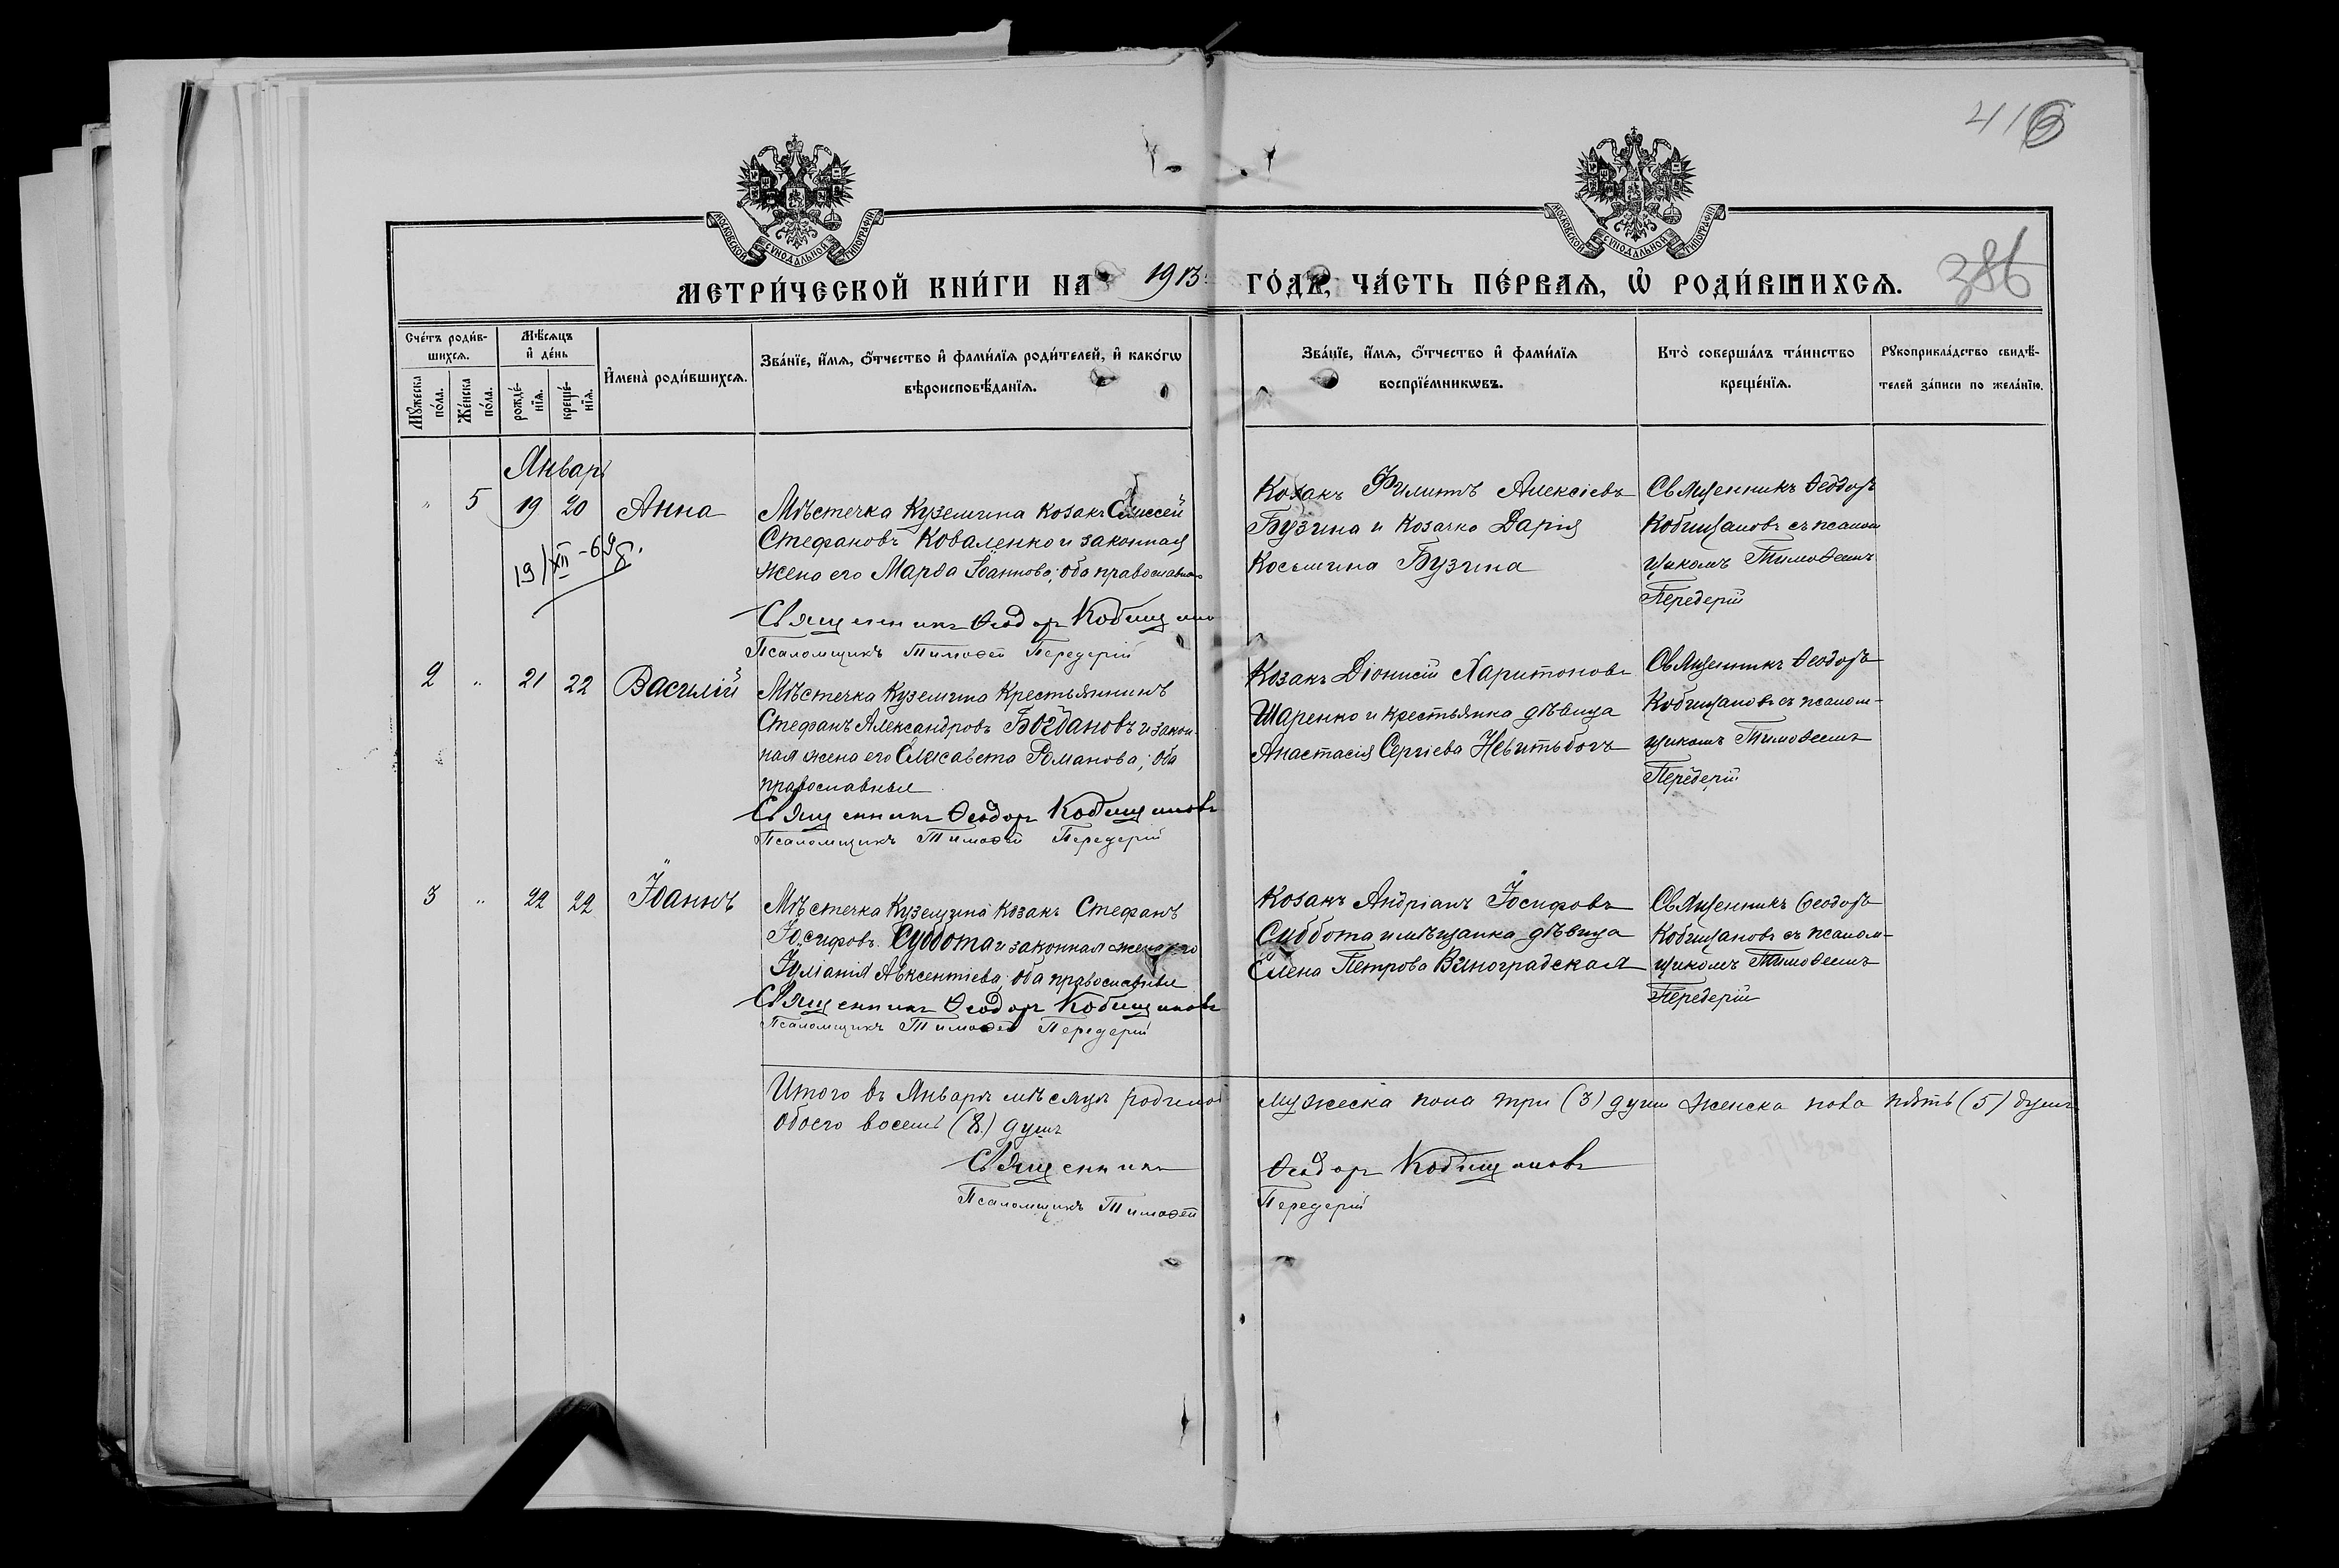 416
386
МОСКОВСКОЙ СѴНОДАЛЬНОЙ ТИПОГРАФІИ
МОСКОВСКОЙ СѴНОДАЛЬНОЙ ТИПОГРАФІИ
МЕТРИ́ЧЕСКОЙ КНИ́ГИ НА 1913 ГО́ДЪ, ЧА́СТЬ ПЕ́РВАѦ, Ѡ҆ РОДИ́ВШИХСѦ.
Сче́тъ роди́в-
шихсѧ.
Мꙋ́жеска по́ла.
Же́нска по́ла.
Мѣ́сѧцъ
и҆ де́нь
рожде́-
нїѧ.
креще́-
нїѧ.
И҆мена̀ роди́вшихсѧ.
Зва́нїе, и҆́мѧ, ѻ҆́тчество и҆ фами́лїѧ роди́телей, и҆ како́гѡ
вѣроисповѣ́данїѧ.
Зва́нїе, и҆́мѧ, ѻ҆́тчество и҆ фами́лїѧ
воспрїе́мникѡвъ.
Кто̀ соверша́лъ та́инство
креще́нїѧ.
Рꙋкоприкла́дство свидѣ́-
телей за́писи по жела́нїю.
Январь
" 5 19 20 Анна
19/XII-69г.
Мѣстечка Куземина козакъ
Стефановъ Коваленко и законная
жена его Марѳа Іоаннова; оба православные
Священникъ Ѳеодоръ Кобищановъ
Псаломщикъ Тимоѳей Передерій
Козакъ Филиппъ Алексіевъ
Бузина и козачка Дарія
Косьмина Бузина
Священникъ Ѳеодоръ
Кобищановъ съ псалом
щикомъ Тимоѳеемъ
Передерій
2 " 21 22 Василій
Мѣстечка Куземина Крестьянинъ
Стефанъ Александровъ Богдановъ и закон-
ная жена его Елисавета Романова; оба
православные
Священникъ Ѳеодоръ Кобищановъ
Псаломщикъ Тимоѳей Передерій
Козакъ Діонисій Харитоновъ
Шаренко и крестьянка дѣвица
Анастасія Сергіева Невитьбогъ
Священникъ Ѳеодоръ
Кобищановъ съ псалом-
щикомъ Тимоѳеемъ
Передерій
3 " 22 22 Іоаннъ
Мѣстечка Куземина козакъ Стефанъ
Іосифовъ Суббота и законная жена его
Іуліанія Авксентіева; оба православные
Священникъ Ѳеодоръ Кобищановъ
Псаломщикъ Тимоѳей Передерій
Козакъ Андріанъ Іосифовъ
Суббота и мѣщанка дѣвица
Елена Петрова Виноградская
Священникъ Ѳеодоръ
Кобищановъ съ псалом-
щикомъ Тимоѳеемъ
Передерій
Итого въ Январѣ мѣсяцѣ родилось мужеска пола три (3) души женска пола пять (5) душъ
Обоего восемь (8) душъ
Священникъ Ѳеодоръ Кобищановъ
Псаломщикъ Тимоѳей Передерій